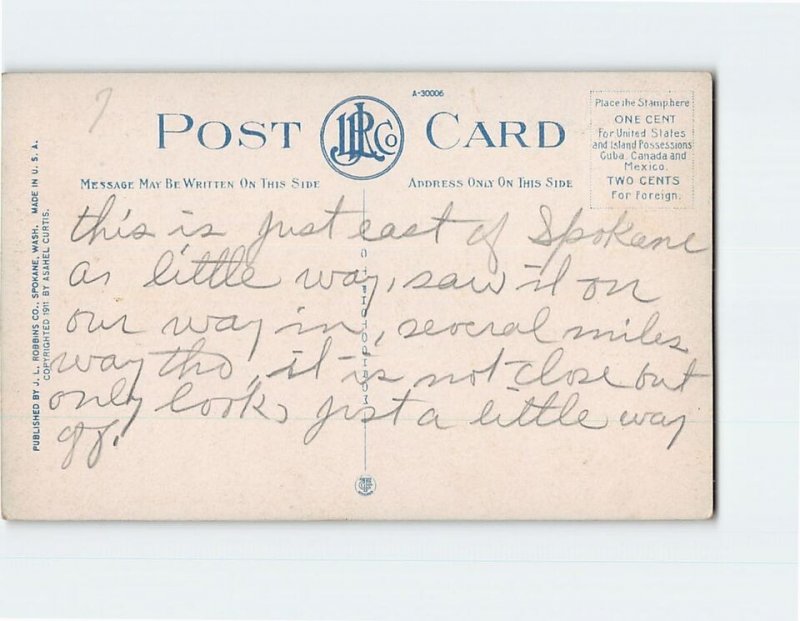 7
A-30006
POST CARD
JLR Co
MESSAGE MAY BE WRITTEN ON THIS SIDE
ADDRESS ONLY ON THIS SIDE
Place the Stamp here
ONE CENT
For United States
and Island Possessions
Cuba, Canada and
Mexico.
TWO CENTS
For Foreign.
PUBLISHED BY J. L. ROBBINS CO., SPOKANE, WASH. MADE IN U. S. A.
COPYRIGHTED 1911 BY ASAHEL CURTIS.
this is just east of Spokane
a little way, saw it on
our way in, several miles
way tho, it is not close but
only looks just a little way
off.